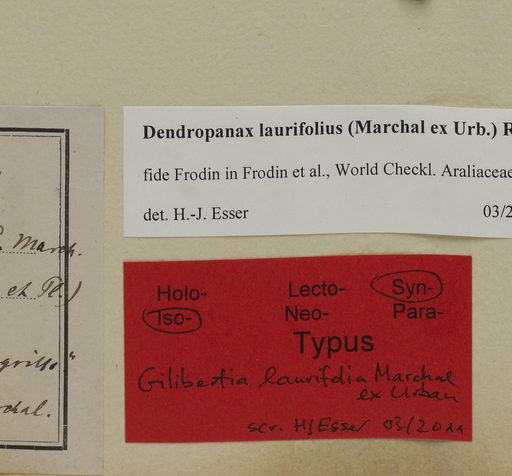 Dendropanax laurifolius (Marchal ex Urb.) R
fide Frodin in Frodin et al., World Checkl. Araliaceae
det. H.-J. Esser 03/2
March.
et Pl.)
chal.
Holo- Lecto- Syn-
Iso- Neo- Para-
Typus
Gilibertia laurifolia Marchal
ex Urban
scr. HJEsser 03/2011